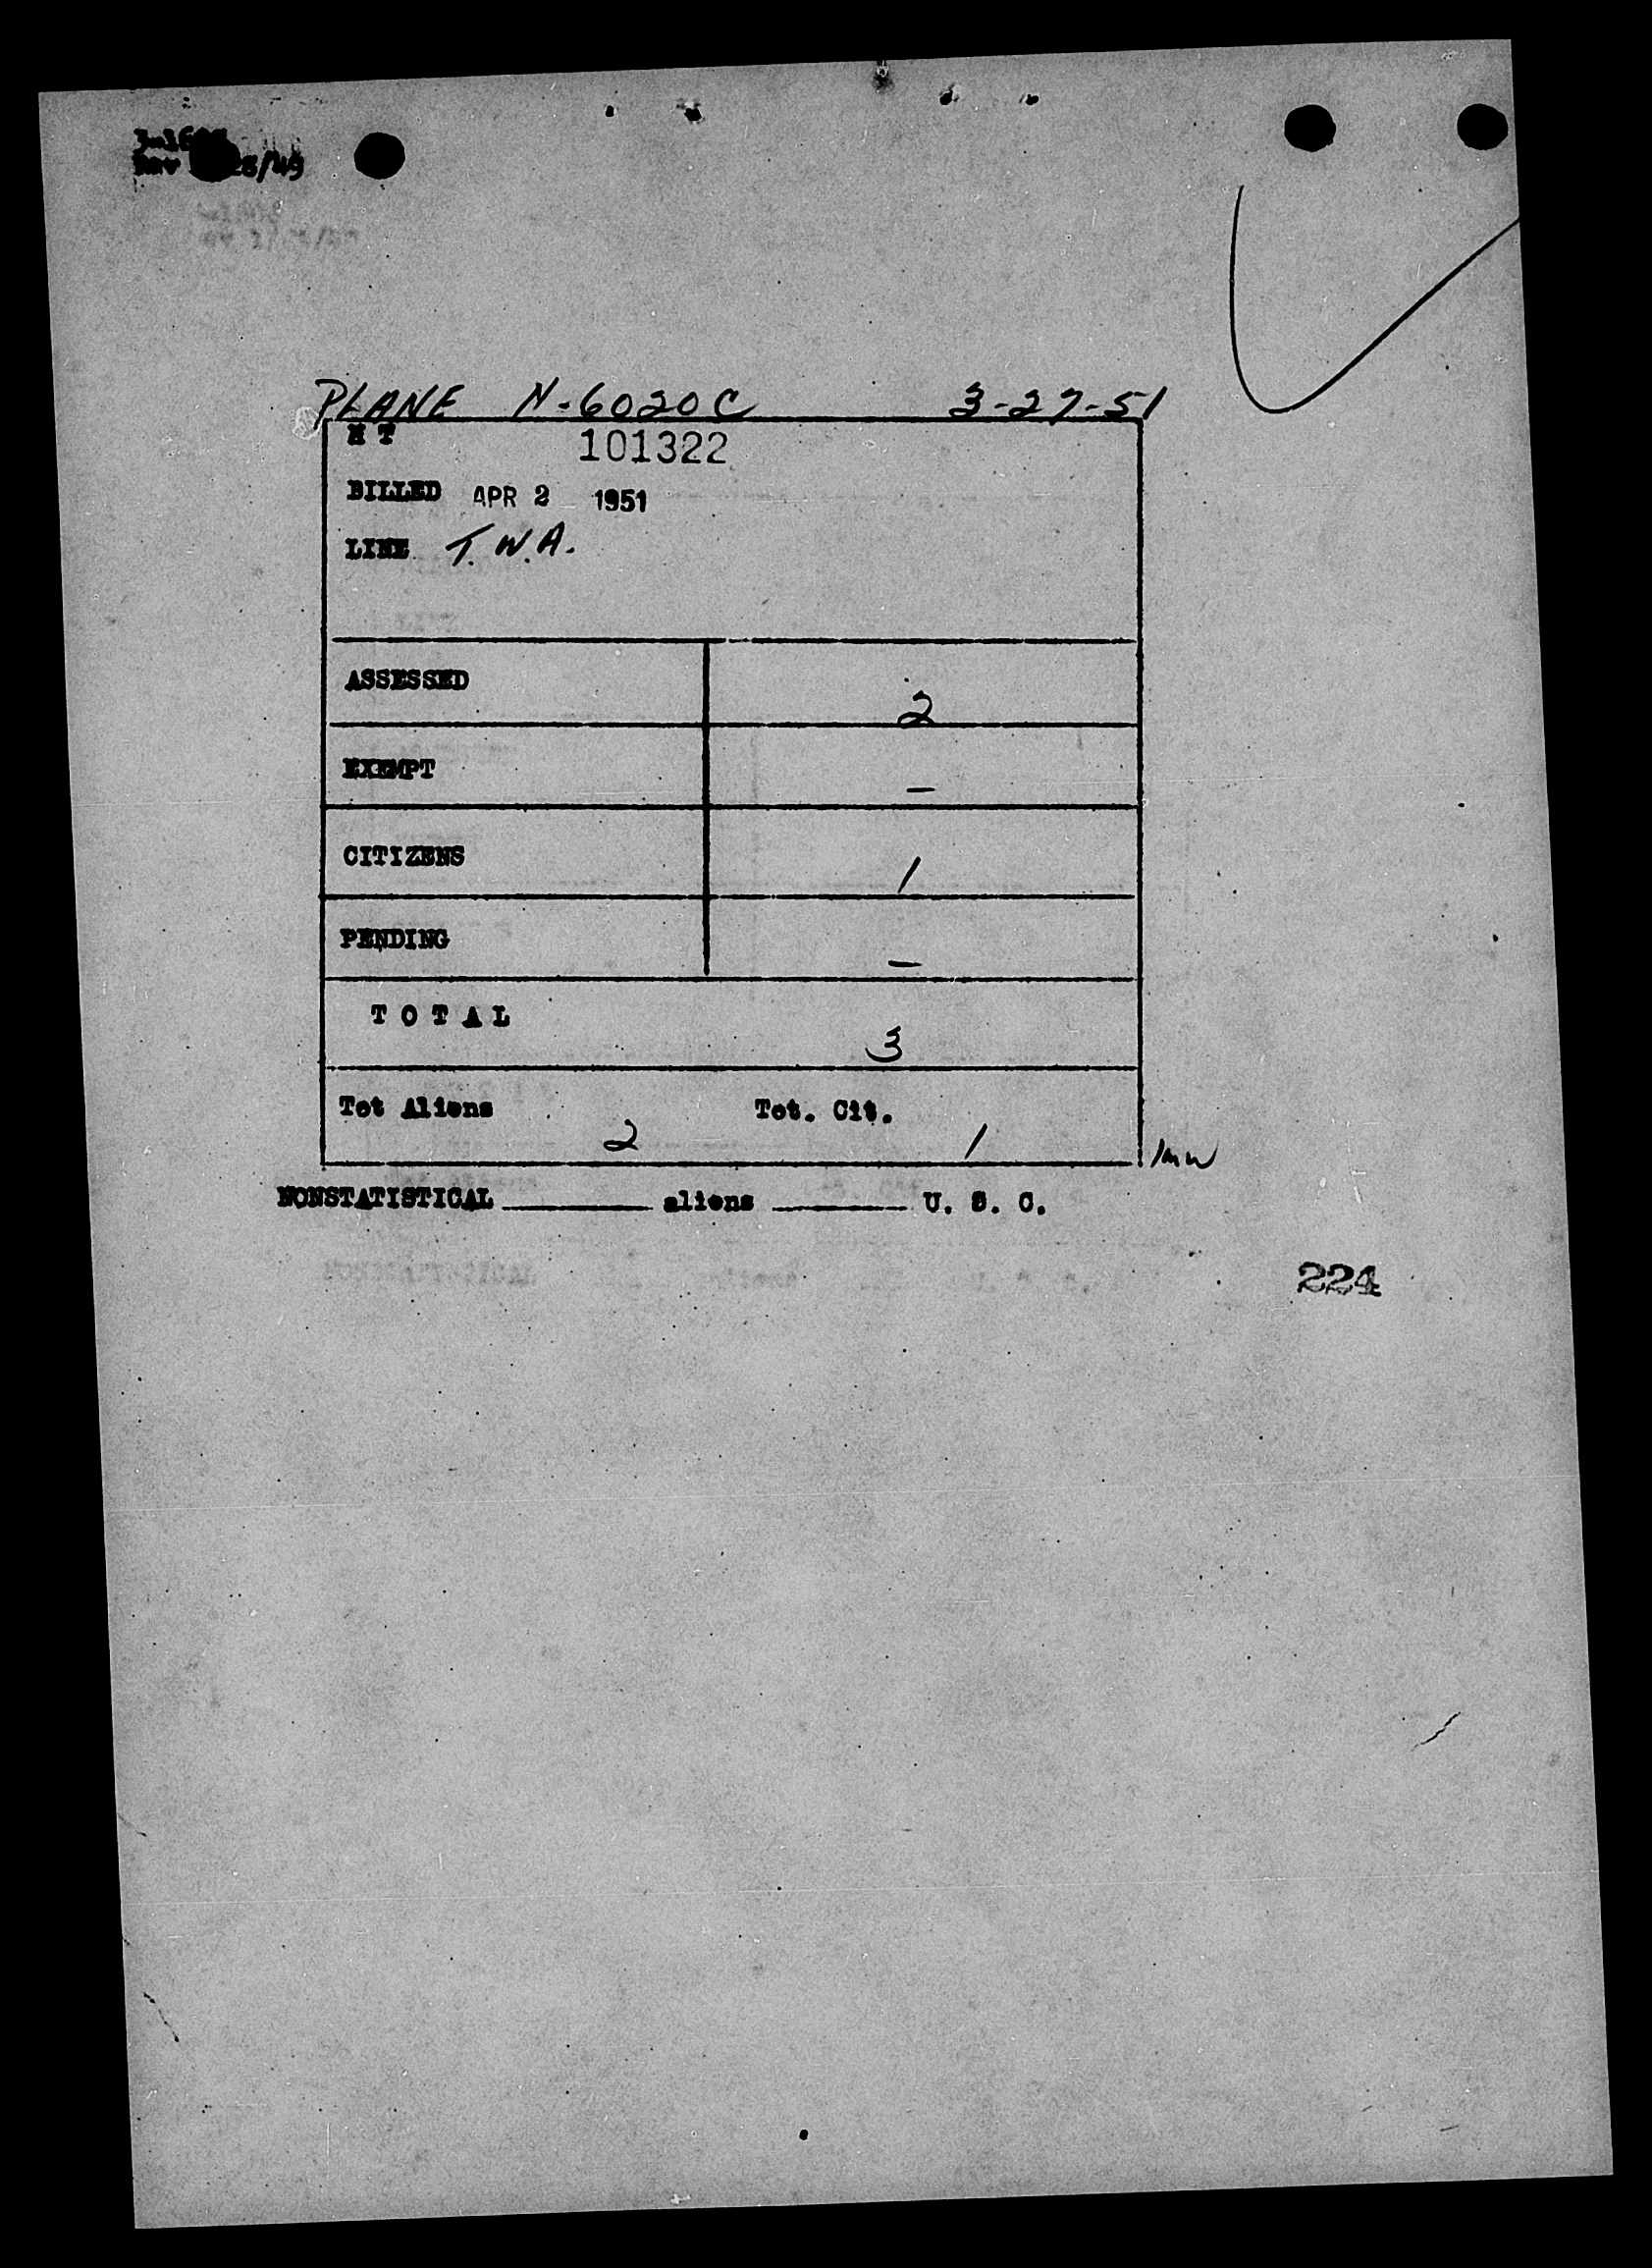 /49
PLANE N-6020C 3-27-51
H T 101322
BILLED APR 2 1951
LINE T.W.A.
ASSESSED 2
EXEMPT –
CITIZENS 1
PENDING –
T O T A L 3
Tot Aliens 2 Tot. Cit. 1
NONSTATISTICAL ______ aliens ______ U. S. C.
224